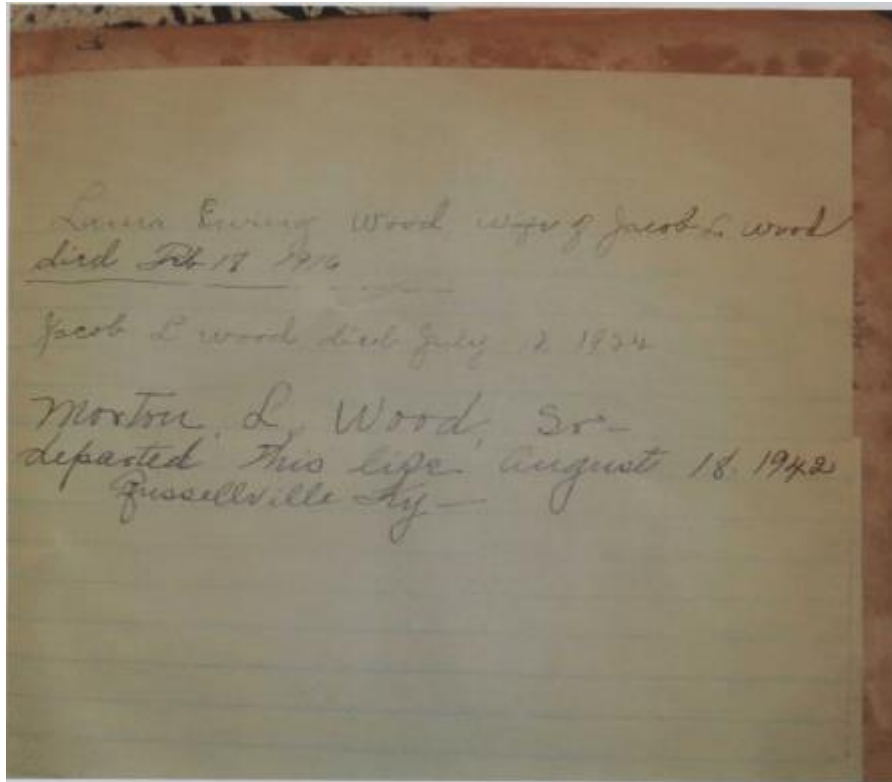 Laura Ewing Wood wife of Jacob L wood
died Feb 18 1916
Jacob L wood died July 12 1924
Morton L. Wood, Sr-
departed this life August 18 1942
Russellville Ky-